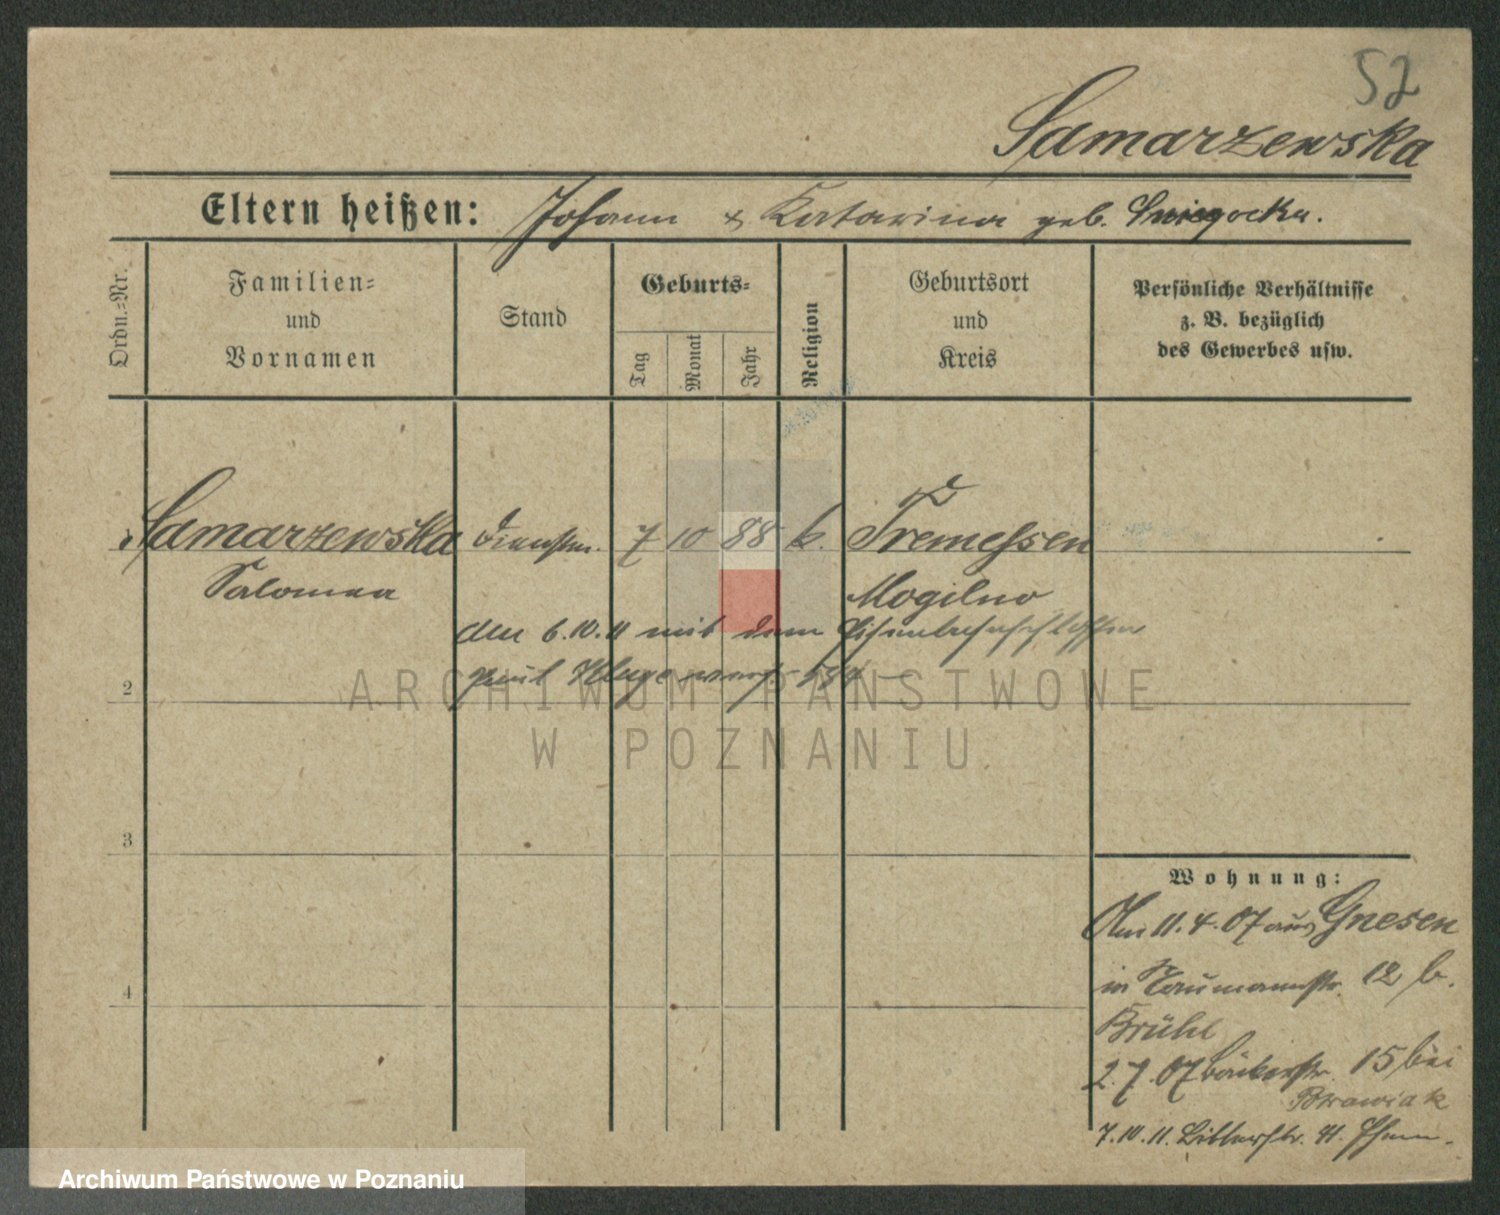 52
Samarzewska
Eltern heißen: Johann & Katarina geb.
Ordn.=Nr.
Familien=
und
Vornamen
Stand
Geburts=
Tag
Monat
Jahr
Religion
Geburtsort
und
Kreis
Persönliche Verhältnisse
z. B. bezüglich
des Gewerbes usw.
Samarzewska
Dienstm. 7 10 88 k. Tremessen
Salomea
Mogilno
den 6.10.11 mit dem
Paul Kluge verh.
2
ARCHIWUM PAŃSTWOWE
W POZNANIU
3
4
Wohnung:
Am 11.4.07 aus Gnesen
in Naumannstr. 12 b.
Brühl
2.7.07 Bäckerstr. 15 bei
7.10.11.
Archiwum Państwowe w Poznaniu